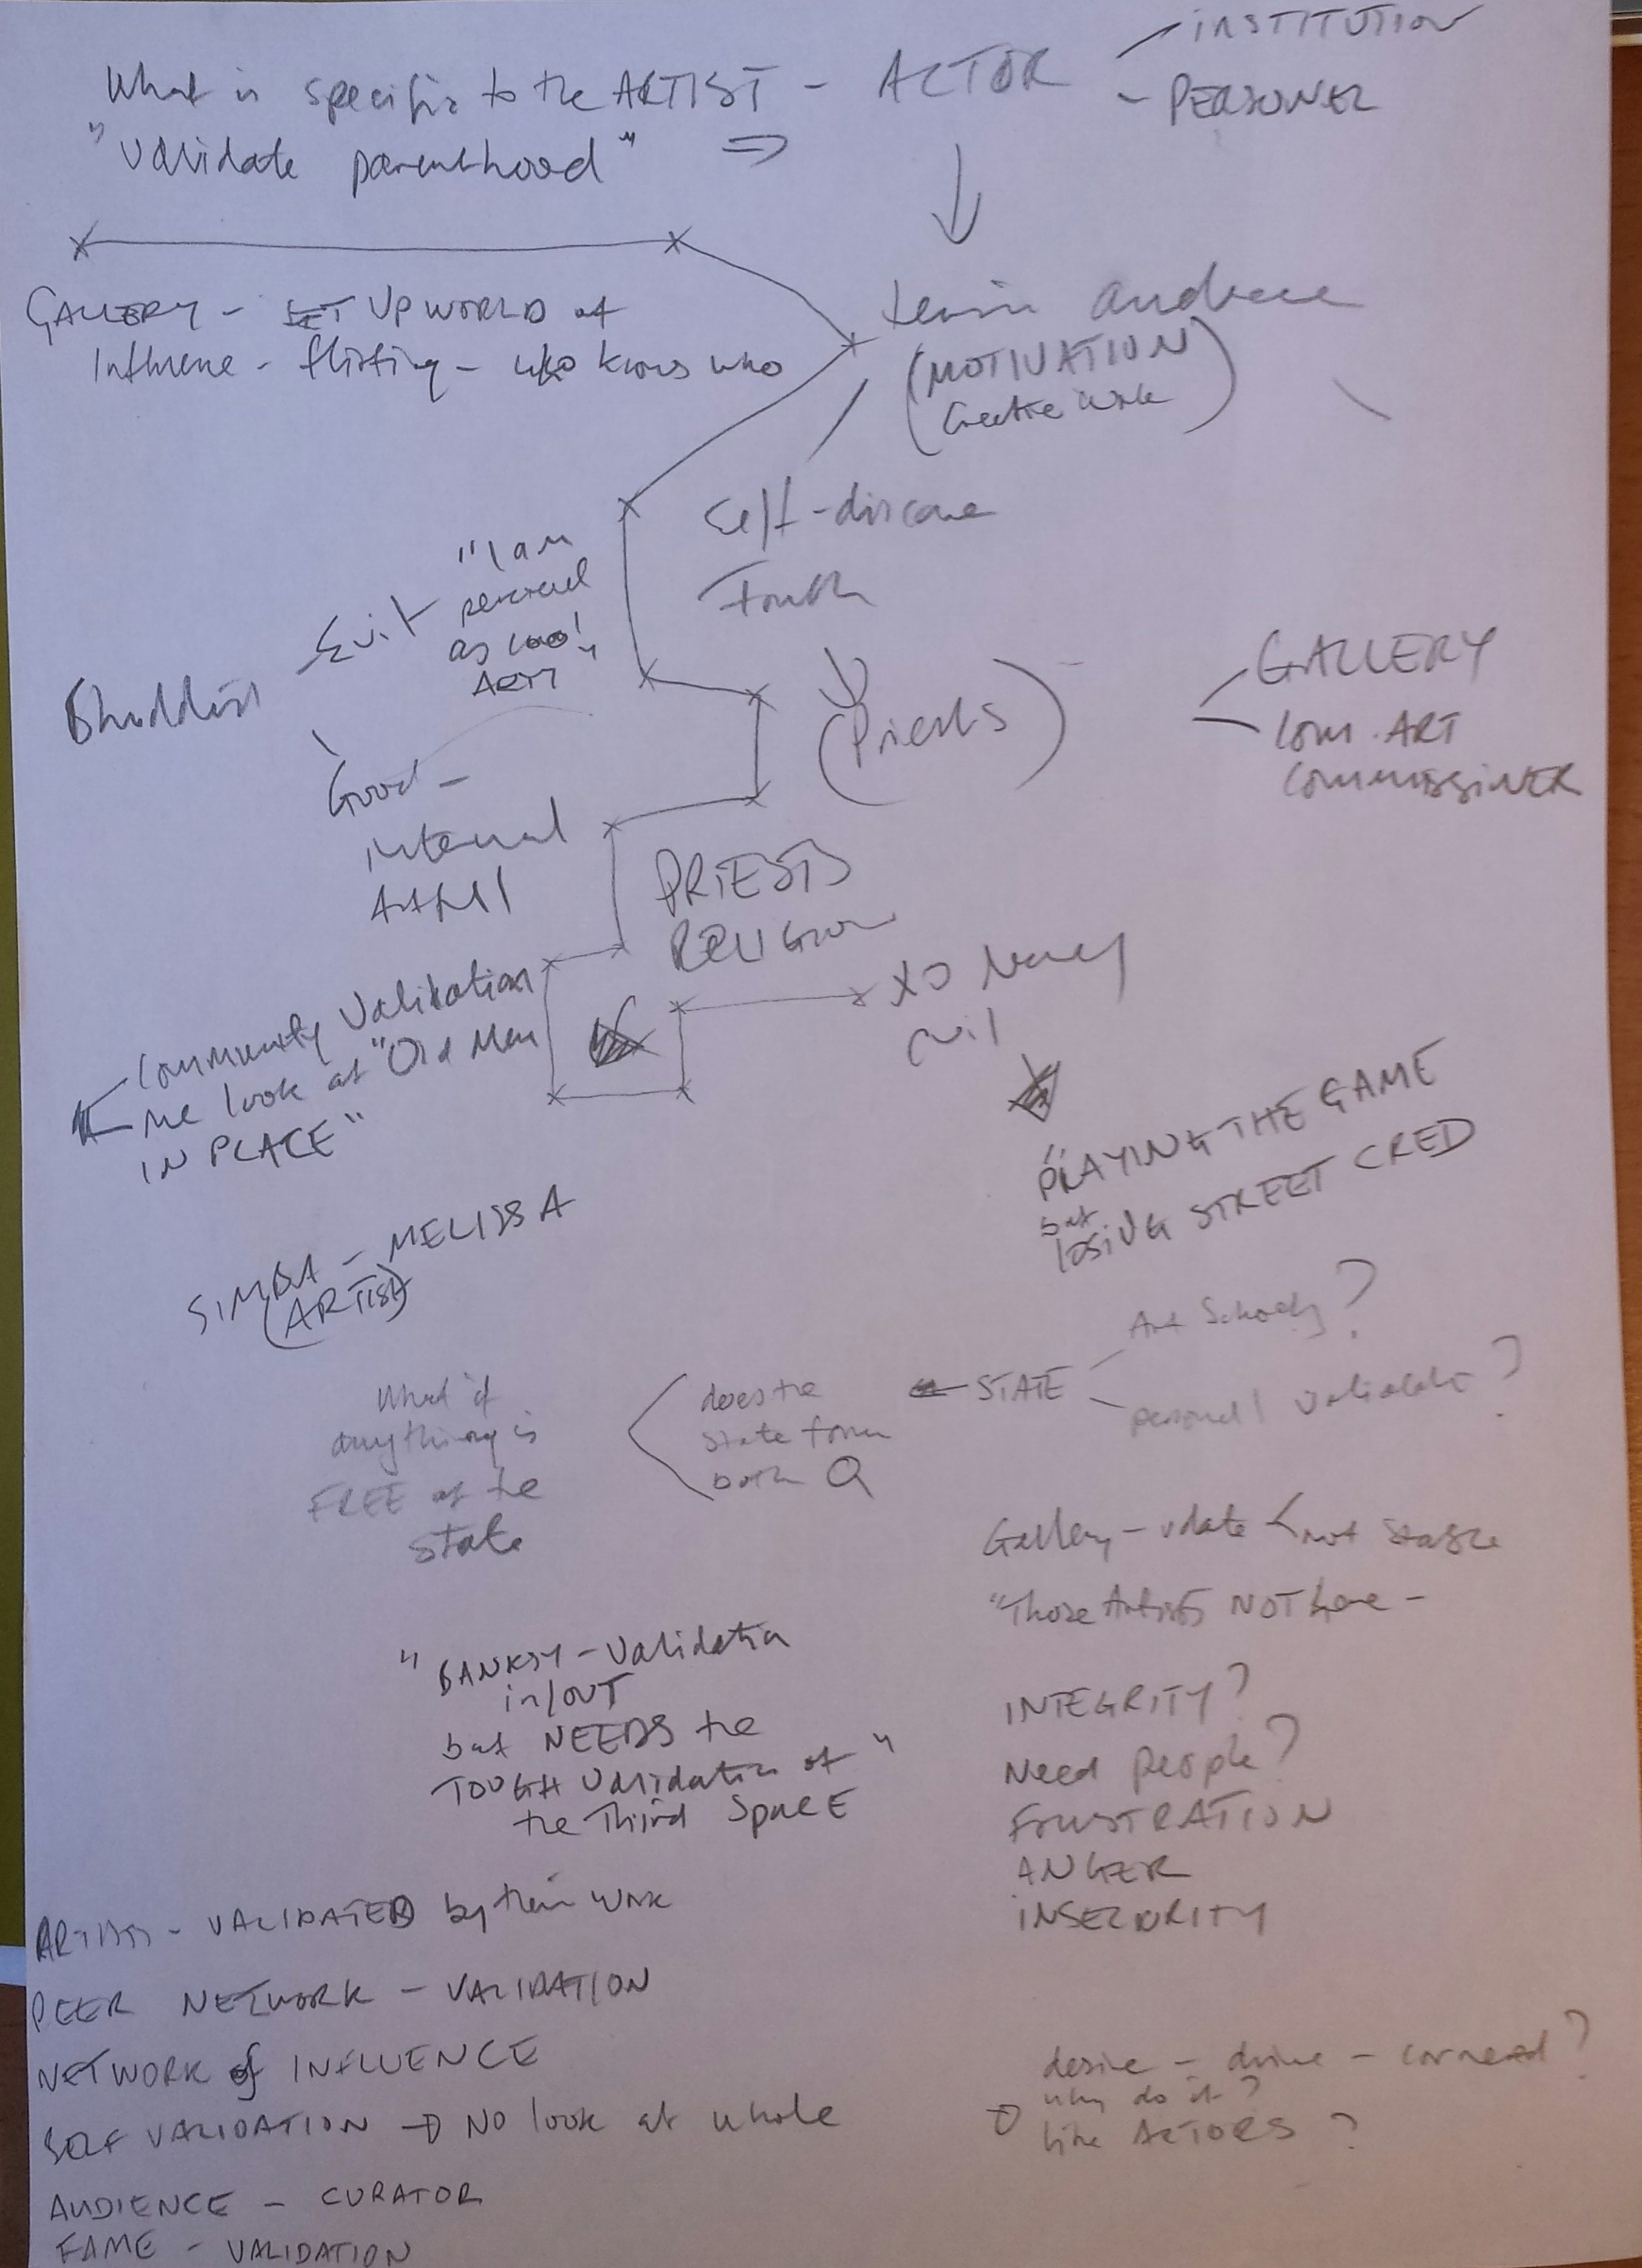 What is specific to the ARTIST - ACTOR
INSTITUTION
- PERSONEL
"validate parenthood" ⇒
GALLERY - SET UP WORLD of
Influence - flirting - who knows who
audience
(MOTIVATION)
Creative work
Self-discove
Truth
"I am
perceived
as cool"
ARTY
Bhuddist
Evil
Good -
internal
(Priests)
GALLERY
COM. ART
COMMISSINER
PRIESTS
RELIGION
evil
Community Validation
we look at "Old Men
IN PLACE"
"PLAYING THE GAME
but
LOSING STREET CRED
SIMBA - MELISSA
(ARTIST)
Art Schools?
STATE
personal validation?
does the
state form
both Q
What if
anything is
FREE of the
state
Gallery - not stable
"Those Artists NOT here -
"BANKSY - Validation
in/OUT
but NEEDS the
TOUGH Validation of "
the Third SpacE
INTEGRITY?
Need people?
FRUSTRATION
ANGER
INSECURITY
ARTISTS - VALIDATED by their work
PEER NETWORK - VALIDATION
NETWORK of INFLUENCE
SELF VALIDATION → NO look at whole
AUDIENCE - CURATOR
FAME - VALIDATION
desire - drive -
why do it?
like ACTORS ?